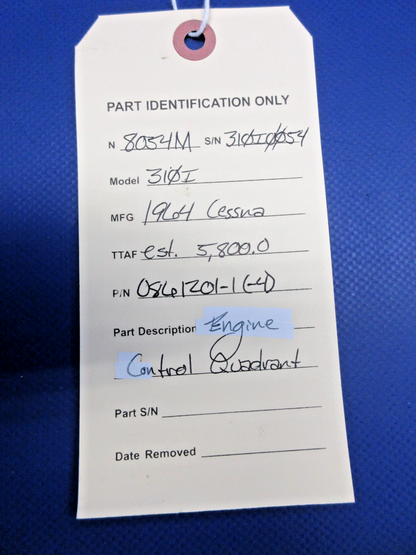 PART IDENTIFICATION ONLY
N 8054M S/N 310I0054
Model 310I
MFG 1964 Cessna
TTAF est. 5,800.0
P/N 0861201-1 (-4)
Part Description Engine
Control Quadrant
Part S/N
Date Removed